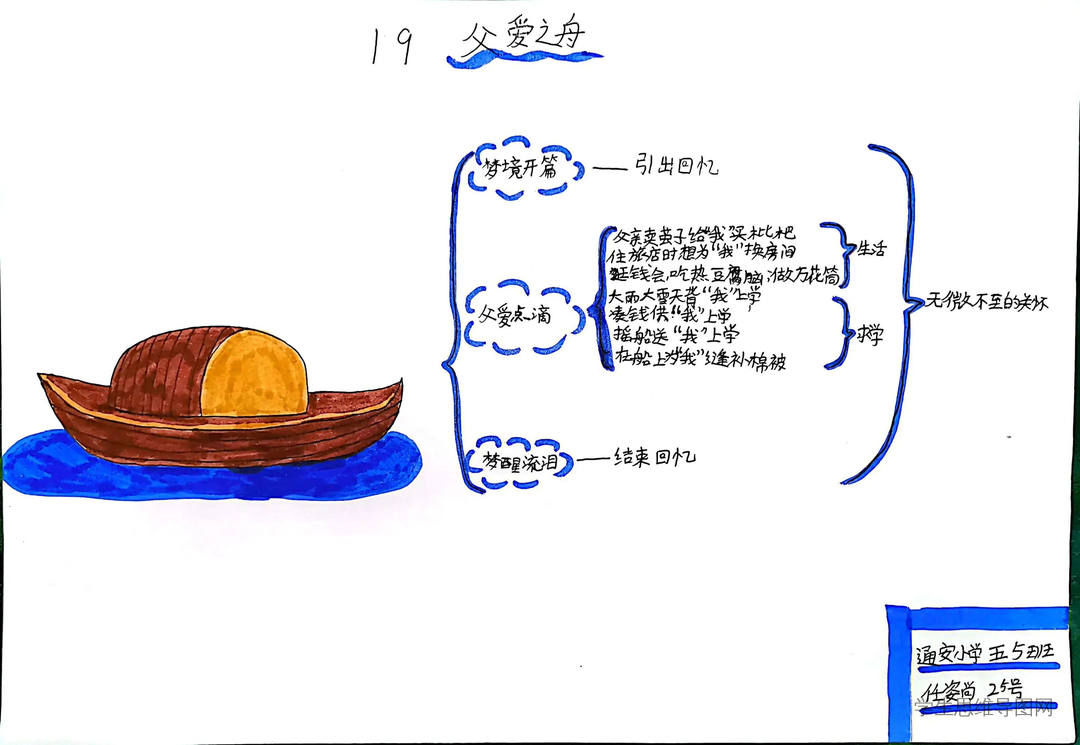 19 父爱之舟
梦境开篇 —— 引出回忆
父爱点滴
父亲卖茧子给“我”买枇杷
住旅店时想为“我”换房间
逛钱会,吃热豆腐脑,做万花筒
大雨大雪天背“我”上学
凑钱供“我”上学
摇船送“我”上学
在船上为“我”缝补棉被
生活
求学
梦醒流泪 —— 结束回忆
无微不至的关怀
通安小学五5班
任姿尚 25号
学生思维导图网